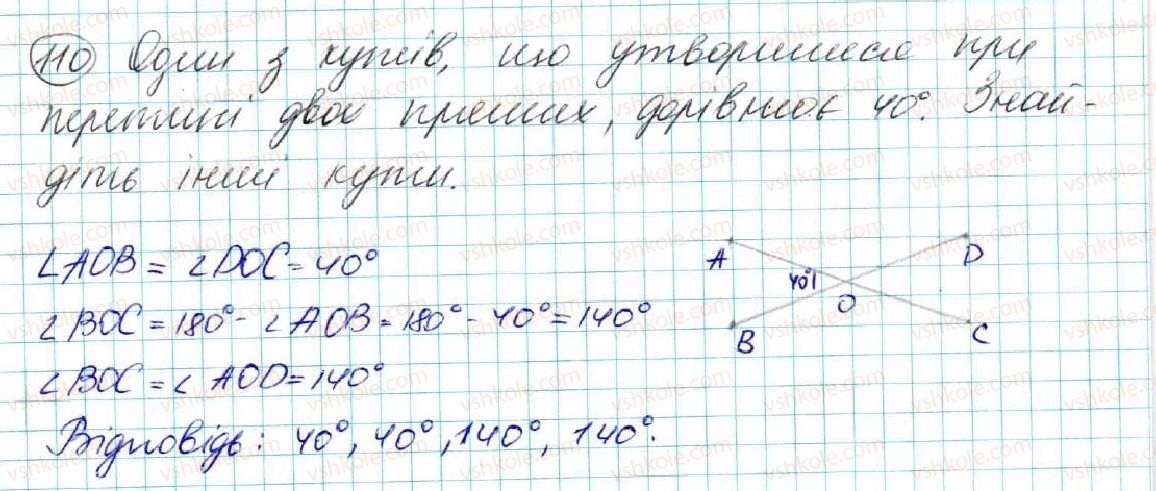 110 Один з кутів, що утворилися при
перетині двох прямих, дорівнює 40°. Знай-
діть інші кути.
∠AOB = ∠DOC = 40°
∠BOC = 180° - ∠AOB = 180° - 40° = 140°
∠BOC = ∠AOD = 140°
Відповідь: 40°, 40°, 140°, 140°.
A
D
40°
O
B
C
vshkole.com